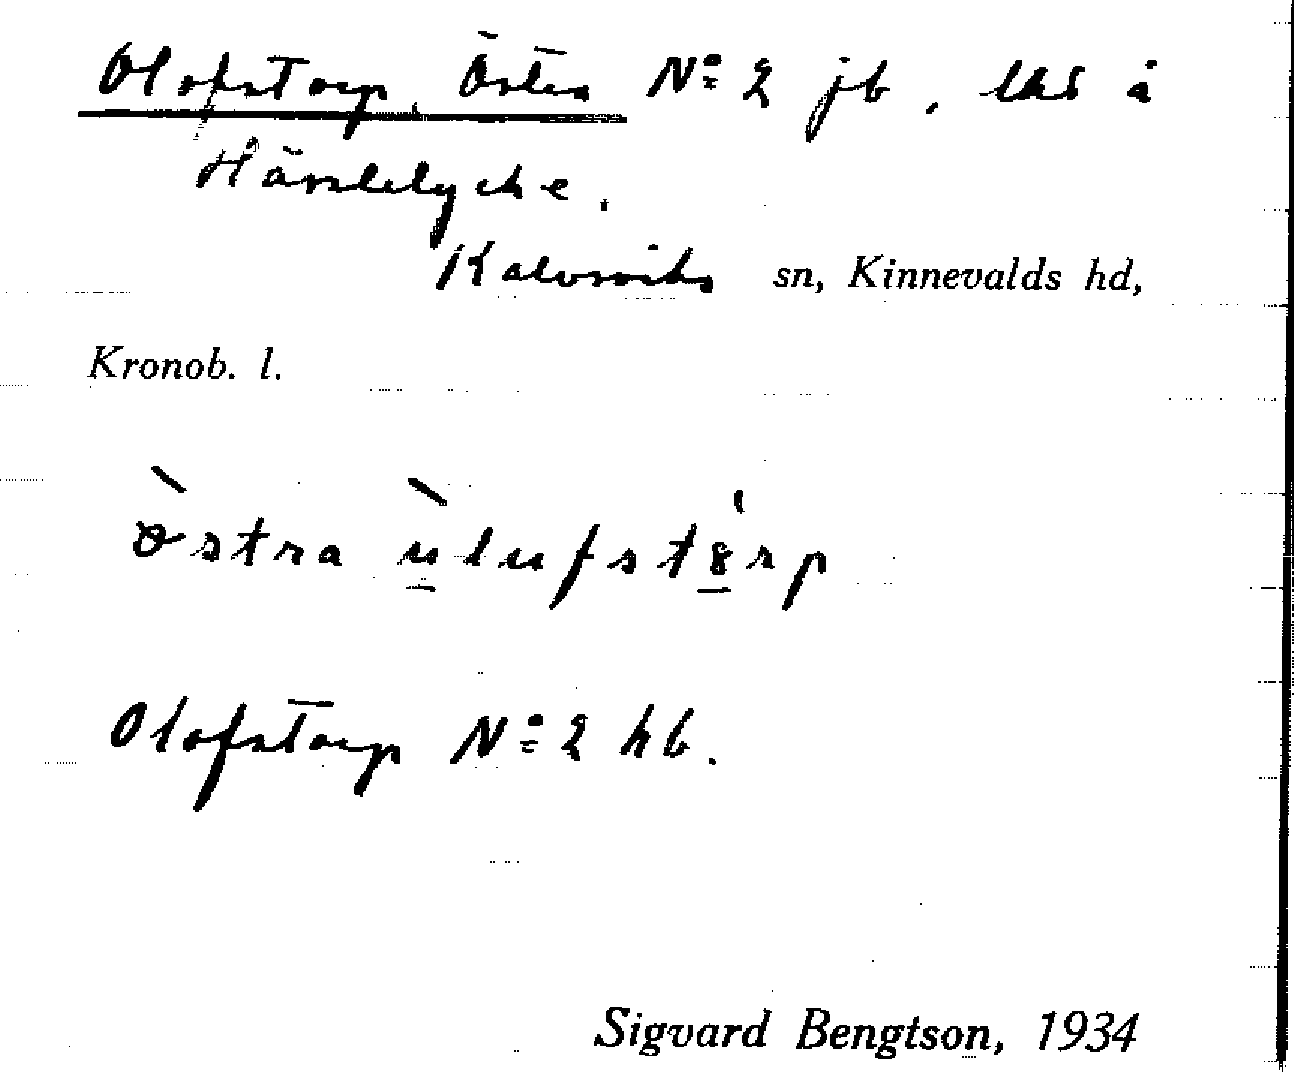 Olofstorp, Östra Nº 2 jb, lhs å
Hävslelycke.
Kalvsviks sn, Kinnevalds hd,
Kronob. l.
östra ulufstorp
Olofstorp Nº 2 hb.
Sigvard Bengtson, 1934